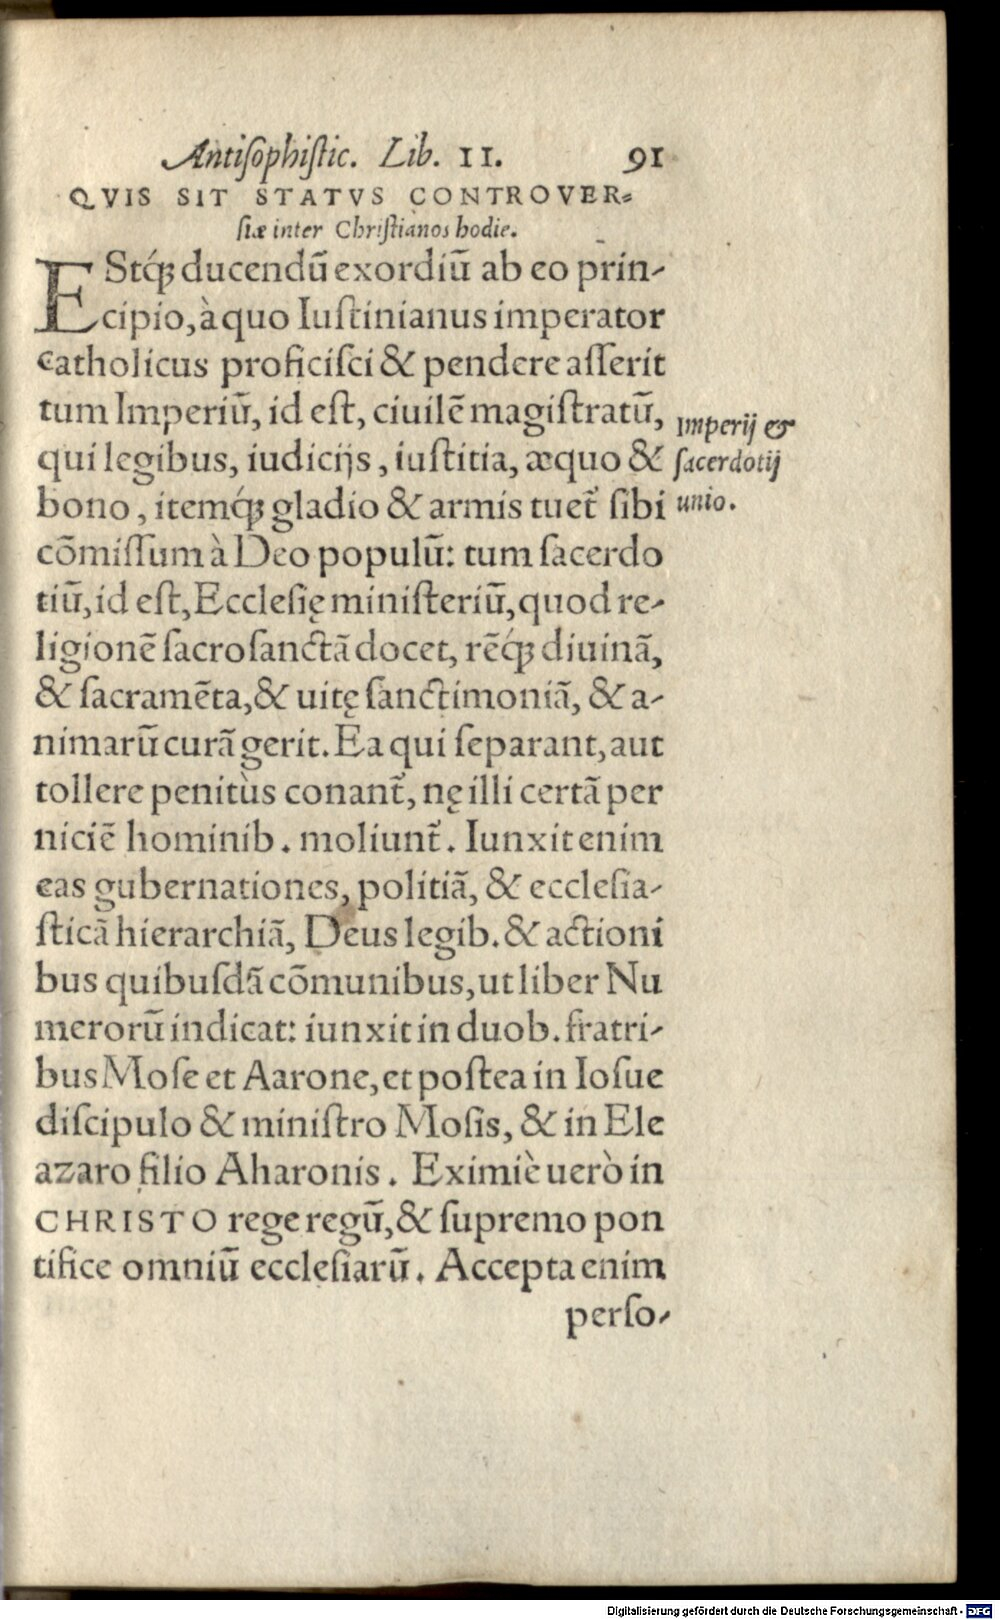 Antiſophiſtic. Lib. II. 91
QVIS SIT STATVS CONTROVER⸗
ſiæ inter Chriſtianos hodie.
EStq́ꝫ ducendū exordiū ab eo prin-
cipio, à quo Iuſtinianus imperator
catholicus proficiſci & pendere aſſerit
tum Imperiū, id eſt, ciuilē magiſtratū,
qui legibus, iudicijs, iuſtitia, æquo &
bono, itemq́ꝫ gladio & armis tuet᷑ ſibi
cōmiſſum à Deo populū: tum ſacerdo
tiū, id eſt, Eccleſię miniſteriū, quod re-
ligionē ſacroſanctā docet, rēq́ꝫ diuinā,
& ſacramēta, & uitę ſanctimoniā, & a-
nimarū curā gerit. Ea qui ſeparant, aut
tollere penitùs conant᷑, nę illi certā per
niciē hominib. moliunt᷑. Iunxit enim
eas gubernationes, politiā, & eccleſia-
ſticā hierarchiā, Deus legib. & actioni
bus quibuſdā cōmunibus, ut liber Nu
merorū indicat: iunxit in duob. fratri-
bus Moſe et Aarone, et poſtea in Ioſue
diſcipulo & miniſtro Moſis, & in Ele
azaro filio Aharonis. Eximiè uerò in
CHRISTO rege regū, & ſupremo pon
tifice omniū eccleſiarū. Accepta enim
perſo-
Imperij &
ſacerdotij
unio.
Digitalisierung gefördert durch die Deutsche Forschungsgemeinschaft - DFG